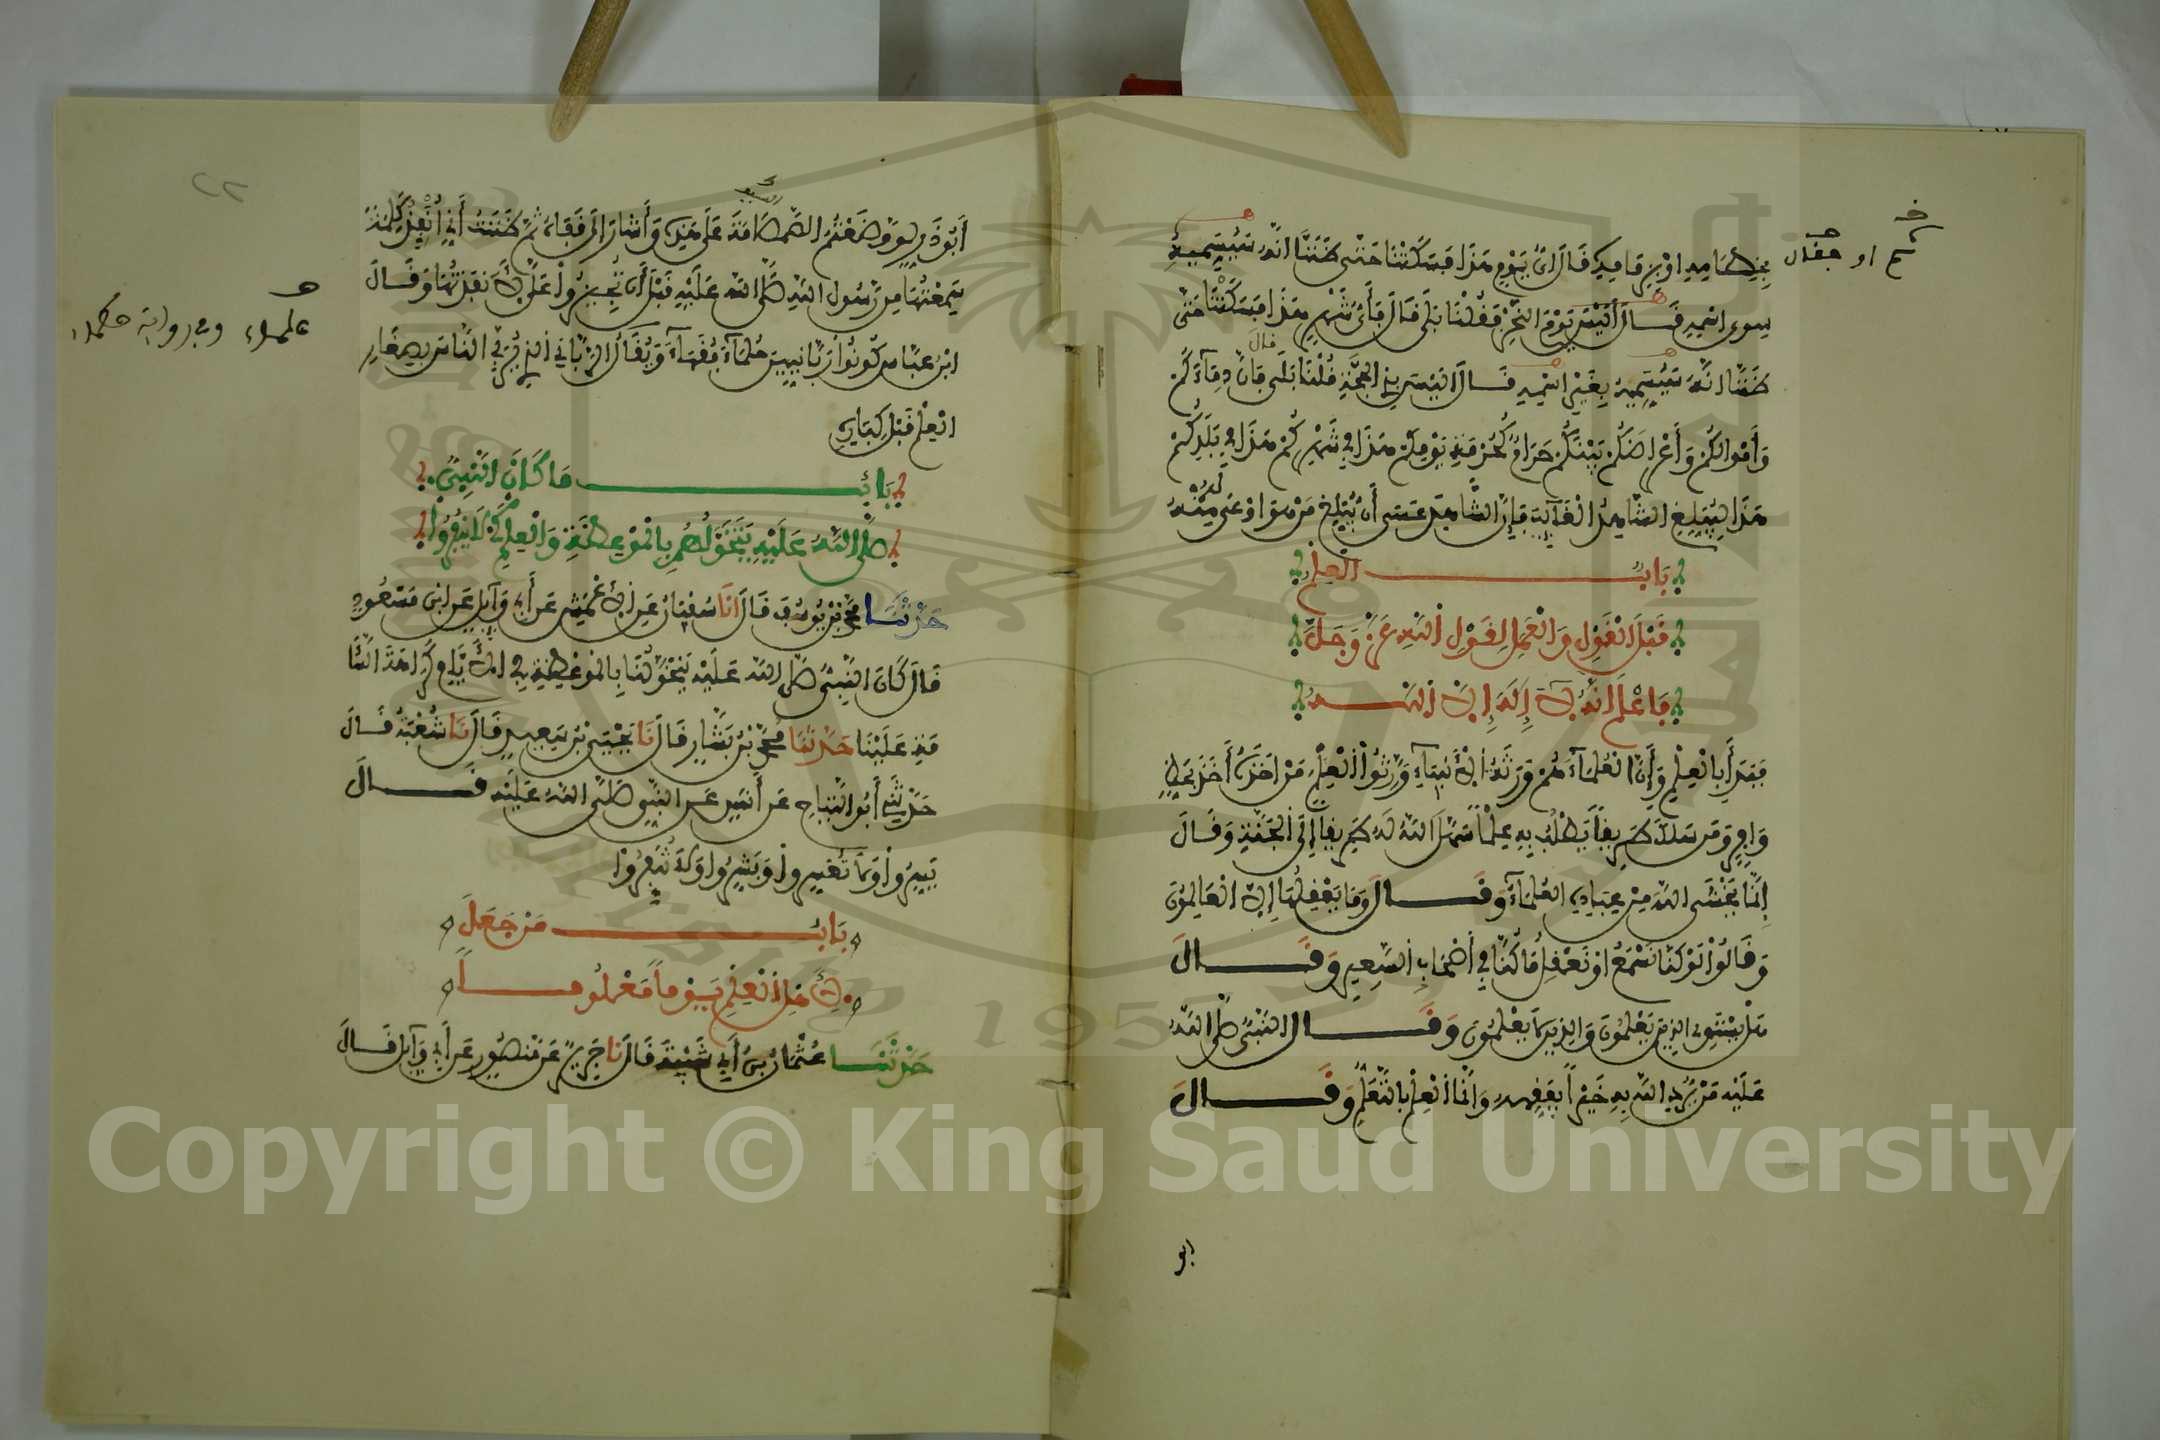 بخطامه او بزمامه فقال اي يوم هذا فسكتنا حتى ظننا انه سيسميه
سوى اسمه قال أليس يوم النحر فقلنا بلى قال فأي شهر هذا فسكتنا حتى
ظننا انه سيسميه بغير اسمه قال اليس بذي الحجة قلنا بلى قال فان دماءكم
وأموالكم وأعراضكم بينكم حرام كحرمة يومكم هذا في شهركم هذا في بلدكم
هذا ليبلغ الشاهد الغائب فإن الشاهد عسى أن يبلغ من هو اوعى له منه
باب العلم
قبل القول والعمل لقول الله عز وجل
فاعلم انه لا إله إلا الله
فبدأ بالعلم وأن العلماء هم ورثة الأنبياء ورثوا العلم من اخذه أخذ بحظ
وافر ومن سلك طريقا يطلب به علما سهل الله له طريقا إلى الجنة وقال
إنما يخشى الله من عباده العلماء وقال وما يعقلها إلا العالمون
وقالوا لو كنا نسمع او نعقل ما كنا في أصحاب السعير وقال
هل يستوي الذين يعلمون والذين لا يعلمون وقال النبي صلى الله
عليه من يرد الله به خيرا يفقهه وانما العلم بالتعلم وقال
ابو
أبو ذر لو وضعتم الصمصامة على هذه وأشار الى قفاه ثم ظننت أني أنفذ كلمة
سمعتها من رسول الله صلى الله عليه قبل أن تجيزوا علي لأنفذتها وقال
ابن عباس كونوا ربانيين حلماء فقهاء ويقال الرباني الذي يربي الناس بصغار
العلم قبل كباره
علماء وفي رواية حكماء
باب ما كان النبي
صلى الله عليه يتخولهم بالموعظة والعلم كي لا ينفروا
حدثنا محمد بن يوسف قال انا سفيان عن الاعمش عن أبي وايل عن ابن مسعود
قال كان النبي صلى الله عليه يتخولنا بالموعظة في الأيام كراهة السآ
مة علينا حدثنا محمد بن بشار قال نا يحيى بن سعيد قال نا شعبة قال
حدثني أبو التياح عن أنس عن النبي صلى الله عليه قال
يسروا ولا تعسروا وبشروا ولا تنفروا
باب من جعل
لأهل العلم يوما معلوما
حدثنا عثمان بن أبي شيبة قال نا جرير عن منصور عن أبي وايل قال
Copyright © King Saud University
1957